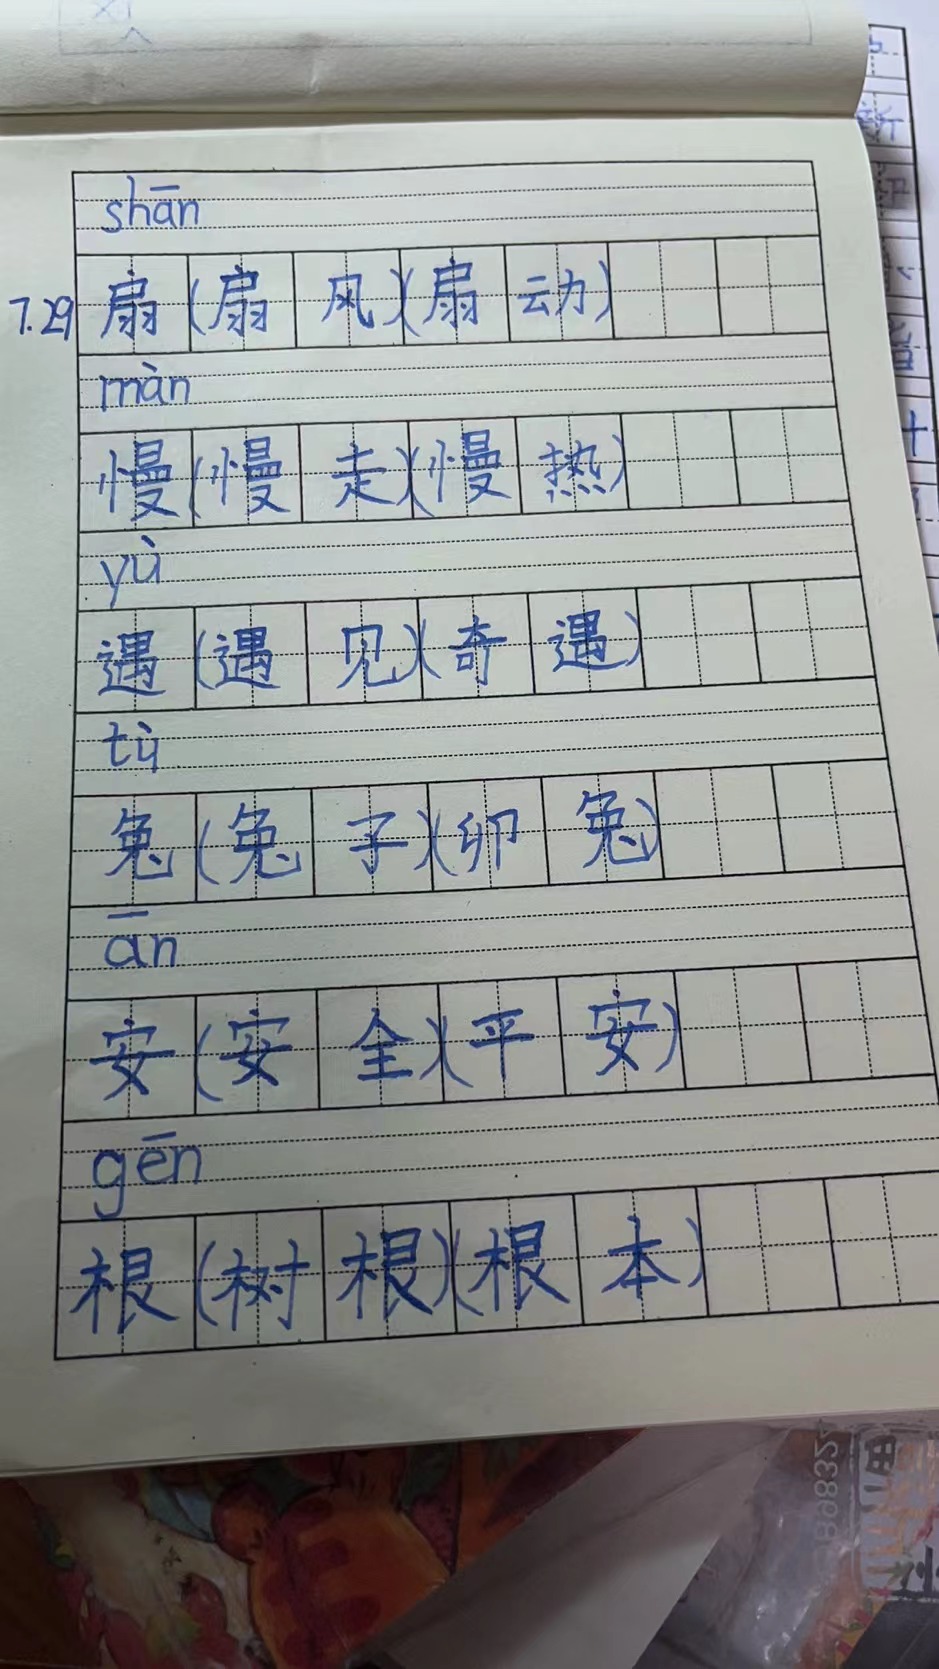 shān
7.29 扇(扇风)(扇动)
màn
慢(慢走)(慢热)
yù
遇(遇见)(奇遇)
tù
兔(兔子)(卯兔)
ān
安(安全)(平安)
gēn
根(树根)(根本)